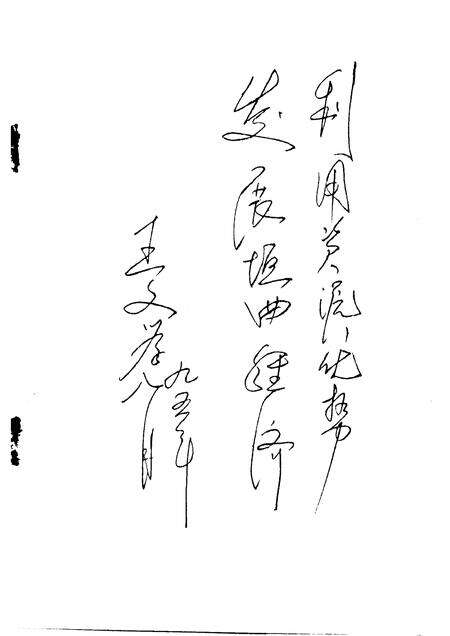 利用资源优势
发展垣曲经济
王文学
九五年
八月